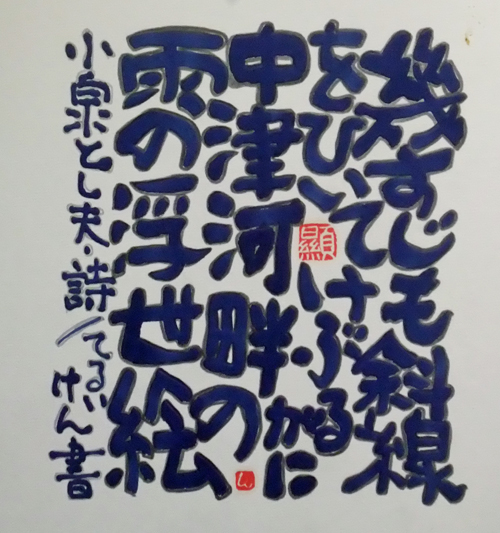 幾すじも斜線
をひいてけぶるがに
中津河畔の
雨の浮世絵
小泉とし夫・詩/てるいけん書
顯